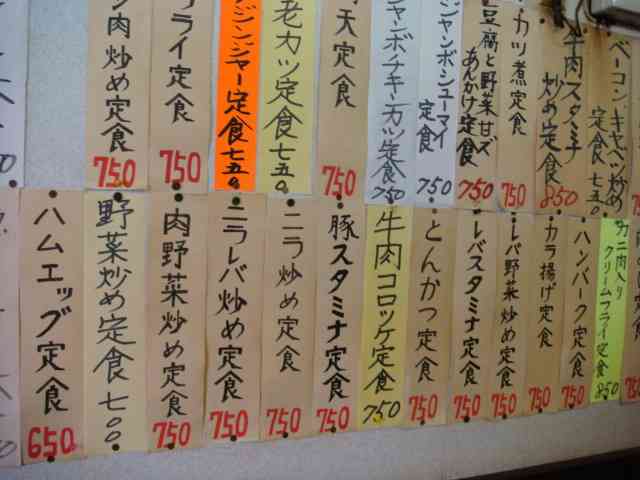 肉炒め定食
750
フライ定食
750
ジンジャー定食 七五〇
カツ定食 七五〇
天定食
750
ジャンボチキンカツ定食
750
ジャンボシューマイ
定食
750
豆腐と野菜甘ズ
あんかけ定食
750
カツ煮定食
750
牛肉スタミナ
炒め定食
850
ベーコンキャベツ炒め
定食 七五〇
ハムエッグ定食
650
野菜炒め定食 七〇〇
肉野菜炒め定食
750
ニラレバ炒め定食
750
ニラ炒め定食
750
豚スタミナ定食
750
牛肉コロッケ定食
750
とんかつ定食
750
レバスタミナ定食
750
レバ野菜炒め定食
750
カラ揚げ定食
750
ハンバーグ定食
750
カニ肉入り
クリームフライ定食
850